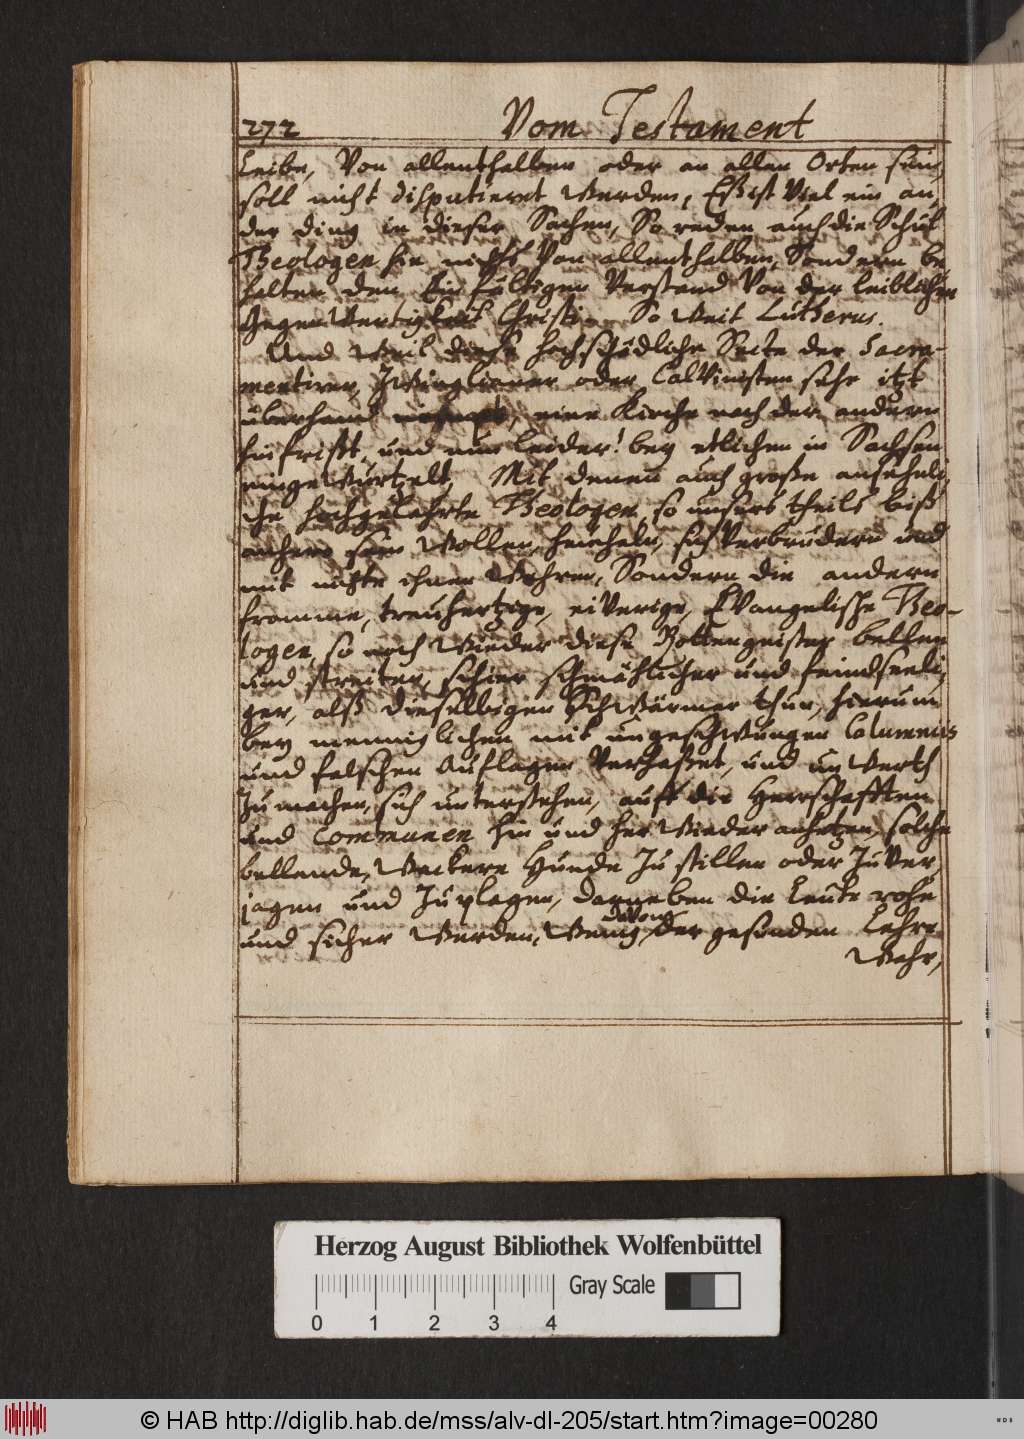 272 Vom Testament
Leibe, Von allenthalben oder an allen Orten sein,
soll nicht disputieret werden, Eß ist viel ein an,
der ding in dieser Sachen, So reden auch die Schul
Theologen hie nichts Von allenthalben, Sondern be
halten den Einfältigen Verstand Von der leiblichen
GegenWertigkeit Christi. So Weit Lutherus.
Und Weil diese hochschädliche Secte der Sacra-
mentirer, Zwinglianer oder Calvinisten sehr itzt
uberhand nehmet, eine Kirche nach der andern
hinfrißt, und nun leider! bey etlichen in Sachsen
eingeWurtzelt, Mit denen auch große ansehnli,
che hochgelahrte Theologen so unsers theils biß
anhero sein Wollen, heucheln, sich Verbrüdern und
mit nichte ihnen Wehren, Sondern die andern
fromme, treuhertzige, eiverige, Evangelische Theo-
logen, so noch Wieder diese Rottengeister bellen
und streiten, schier schmählicher und feindseeli,
ger, alß dieselbigen Schwärmer thun, hierum
bey menniglichen mit ungeschwungen Calumniis
und falschen Auflagen Verhaßet, und un Werth
Zu machen, sich unterstehen, auff die Herrschafften
und Communen hin und her Wieder anhetzen, solche
bellende, Wackere Hunde Zu stillen oder Zu Ver,
jagen und Zu plagen, darneben die Leute rohe
und sicher Werden, Wenig der gesunden Lehre
davon
Wehr,
Herzog August Bibliothek Wolfenbüttel
Gray Scale
0 1 2 3 4
© HAB http://diglib.hab.de/mss/alv-dl-205/start.htm?image=00280